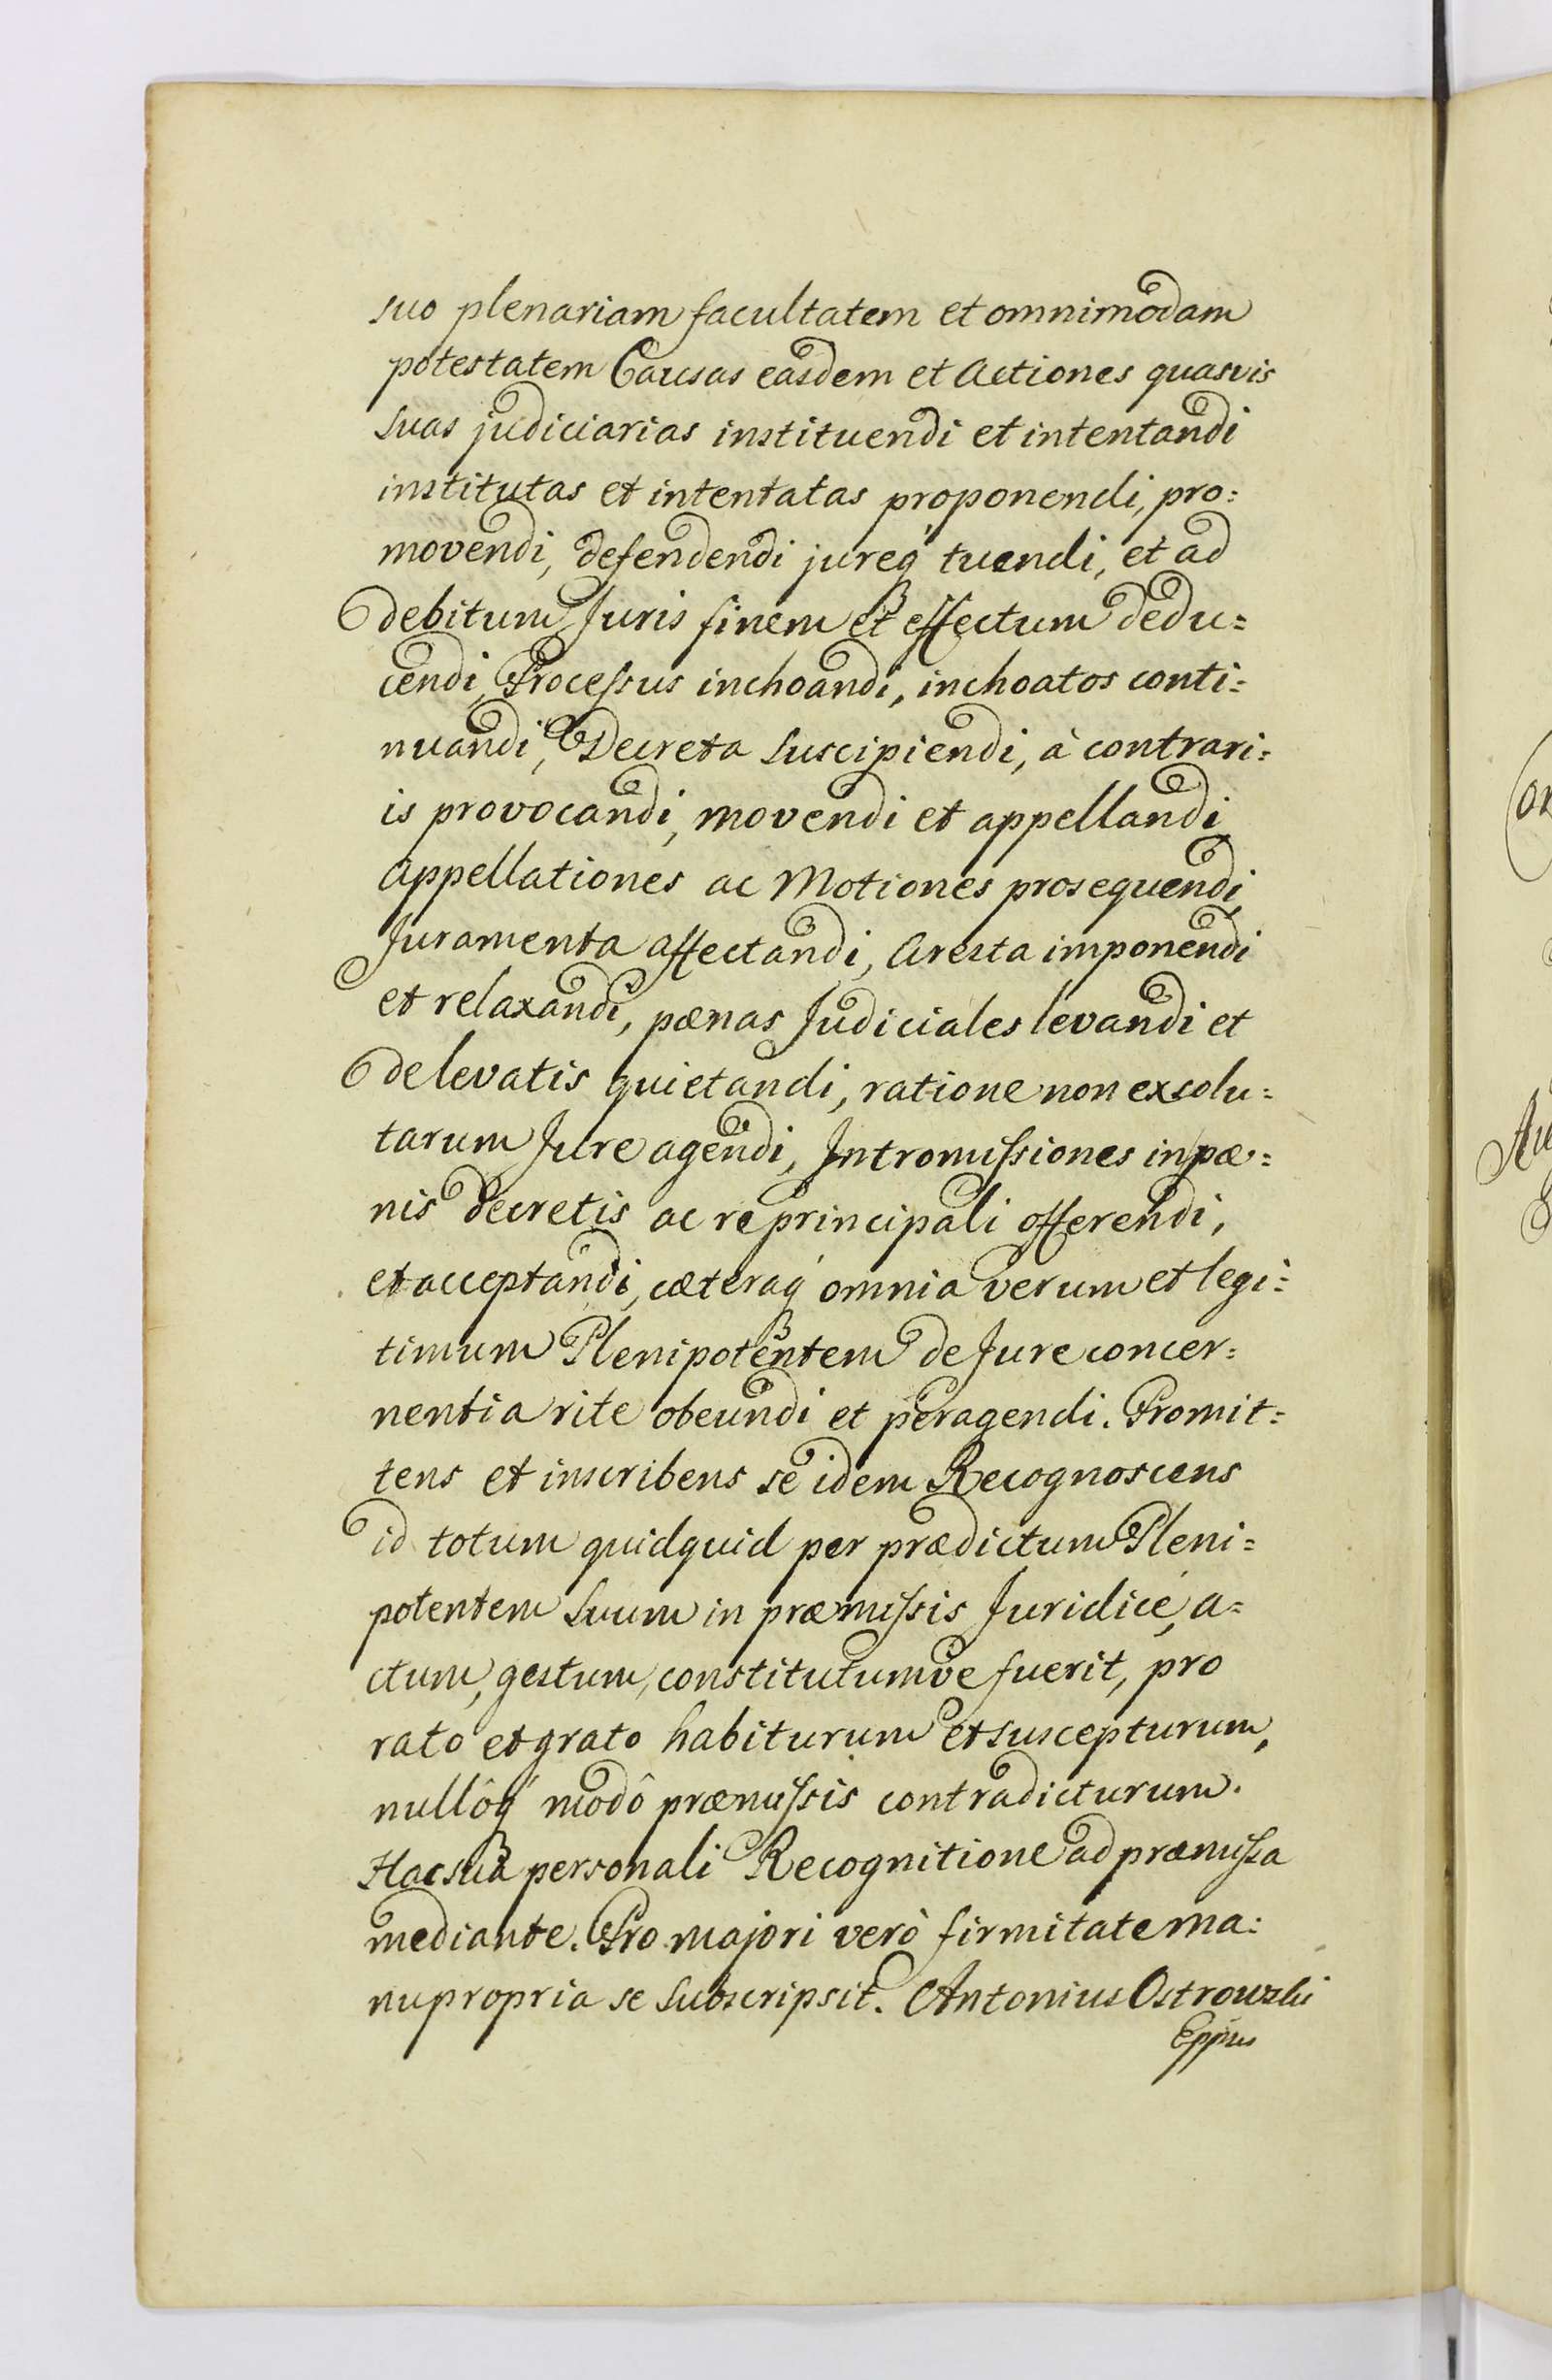 suo plenariam facultatem et omnimodam
potestatem Causas easdem et Actiones quasvis
suas judiciarias instituendi et intentandi
institutas et intentatas proponendi, pro=
movendi, defendendi jureq́ tuendi, et ad
debitum Juris finem et effectum dedu=
cendi, Processus inchoandi, inchoatos conti=
nuandi, Decreta suscipiendi, à contrari=
is provocandi, movendi et appellandi,
appellationes ac Motiones prosequendi,
Juramenta affectandi, Aresta imponendi
et relaxandi, pænas Judiciales levandi et
de levatis quietandi, ratione non exsolu=
tarum Jure agendi, Intromissiones in pæ=
nis decretis ac re principali offerendi,
et acceptandi, cæteraq́ omnia verum et legi=
timum Plenipotentem de Jure concer=
nentia rite obeundi et peragendi. Promit=
tens et inscribens se idem Recognoscens
id totum quidquid per prædictum Pleni=
potentem suum in præmissis Juridicé, a=
ctum, gestum, constitutumve fuerit, pro
rato et grato habiturum et suscepturum,
nullôq́ modô præmissis contradicturum.
Hac suâ personali Recognitione ad præmissa
mediante. Pro majori verò firmitate ma=
nu propria se subscripsit. Antonius Ostrowski
Eppus